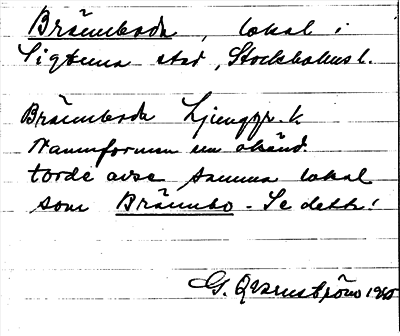 Brännboda, lokal i
Sigtuna stad, Stockholms l.
Brännboda Ljunggr. k.
Namnformen nu okänd.
torde avse samma lokal
som Brännbo - Se detta!
G. Qvarnström 1960